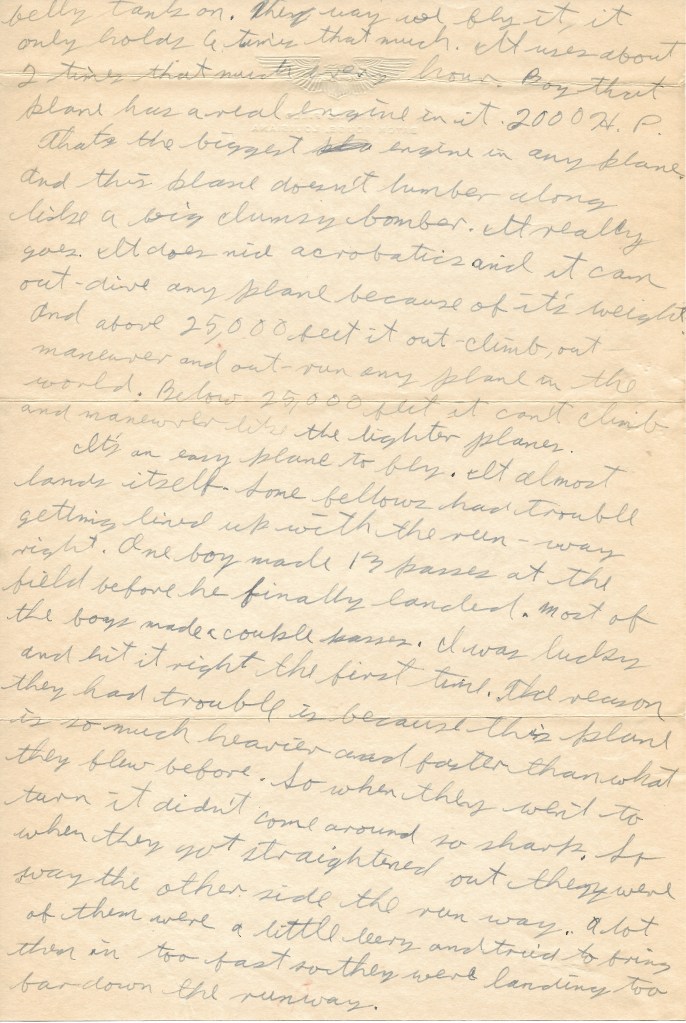 belly tank on. They way we fly it, it
only holds 6 times that much. It uses about
2 times that much every hour. Boy that
plane has a real engine in it. 2000 H. P.
Thats the biggest engine in any plane.
And this plane doesn't lumber along
like a big clumsy bomber. It really
goes. It does nice acrobatics and it can
out-dive any plane because of it's weight.
And above 25,000 feet it out-climb, out-
maneuver and out-run any plane in the
world. Below 25,000 feet it can't climb
and maneuver like the lighter planes.
It's an easy plane to fly. It almost
lands itself. Some fellows had trouble
getting lined up with the run-way
right. One boy made 13 passes at the
field before he finally landed. Most of
the boys made a couple passes. I was lucky
and hit it right the first time. The reason
they had trouble is because this plane
is so much heavier and faster than what
they flew before. So when they went to
turn it didn't come around so sharp. So
when they got straightened out they were
way the other side the run way. A lot
of them were a little leery and tried to bring
them in too fast so they were landing too
far down the runway.